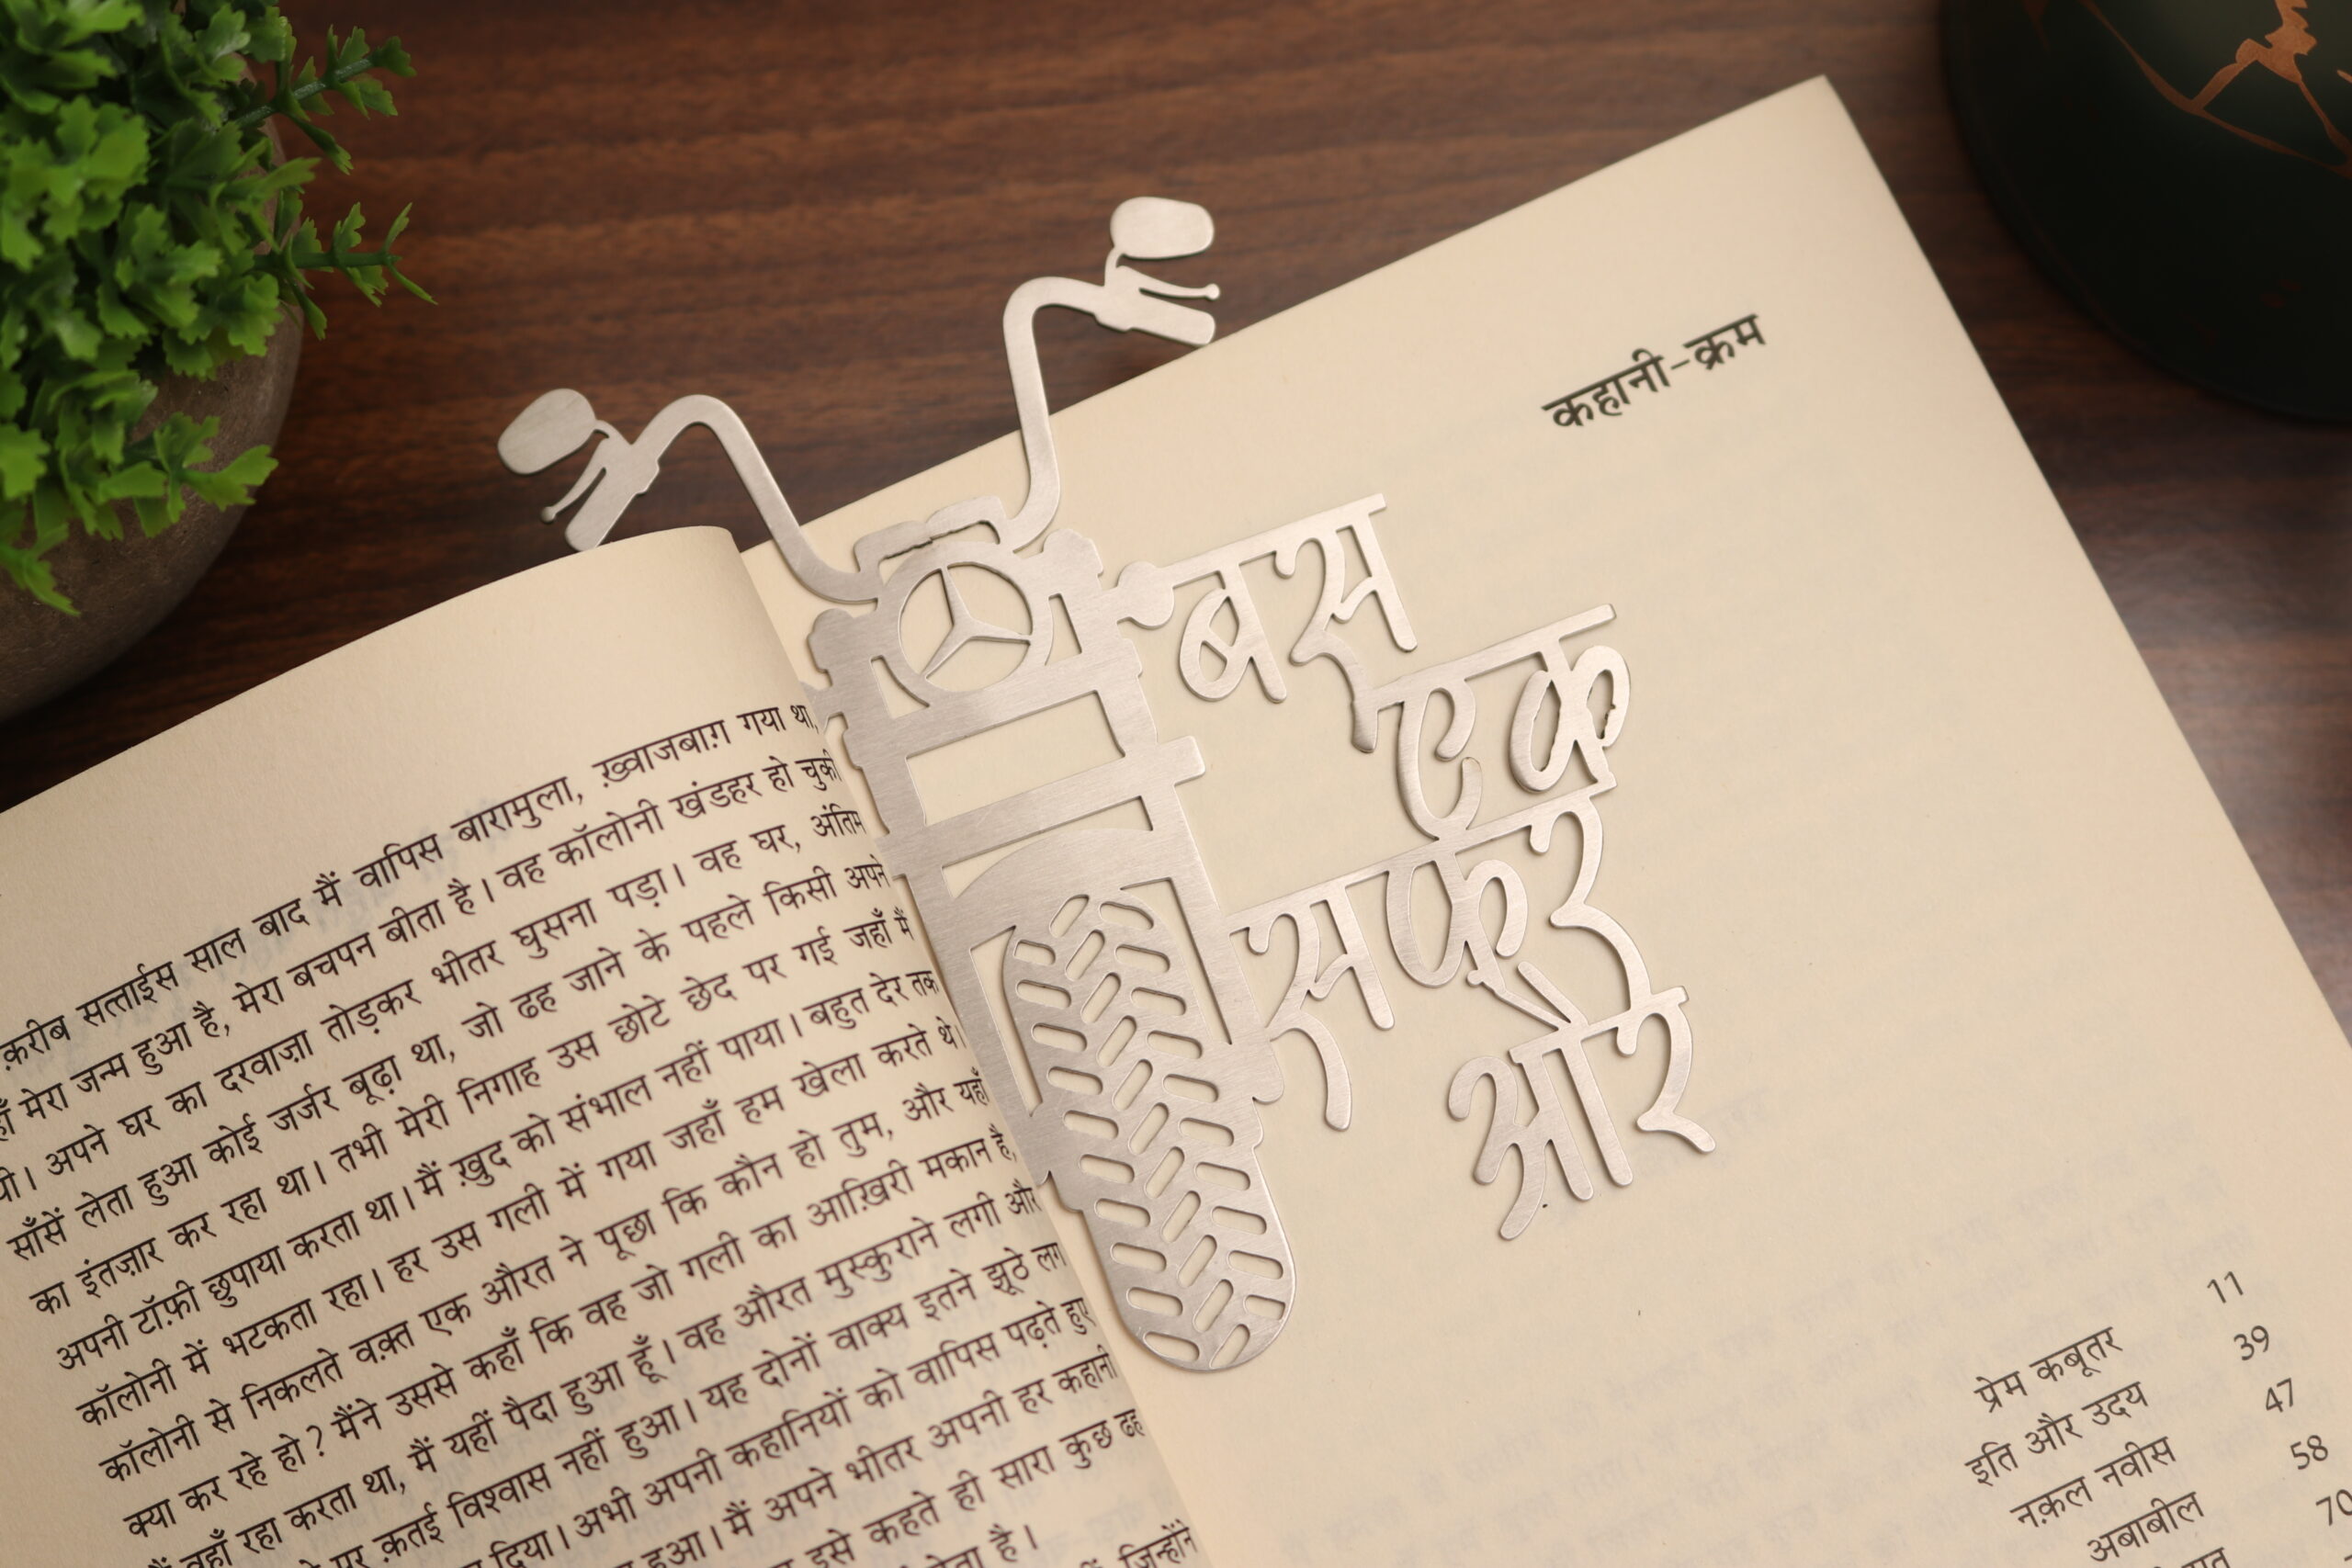 क़रीब सत्ताईस साल बाद मैं वापिस बारामुला, ख़्वाजबाग़ गया था,
मेरा जन्म हुआ है, मेरा बचपन बीता है। वह कॉलोनी खंडहर हो चुकी
थी। अपने घर का दरवाज़ा तोड़कर भीतर घुसना पड़ा। वह घर, अंतिम
साँसें लेता हुआ कोई जर्जर बूढ़ा था, जो ढह जाने के पहले किसी अपने
का इंतज़ार कर रहा था। तभी मेरी निगाह उस छोटे छेद पर गई जहाँ मैं
अपनी टॉफ़ी छुपाया करता था। मैं ख़ुद को संभाल नहीं पाया। बहुत देर तक
कॉलोनी में भटकता रहा। हर उस गली में गया जहाँ हम खेला करते थे।
कॉलोनी से निकलते वक़्त एक औरत ने पूछा कि कौन हो तुम, और यहाँ
क्या कर रहे हो? मैंने उससे कहाँ कि वह जो गली का आख़िरी मकान है,
मैं वहाँ रहा करता था, मैं यहीं पैदा हुआ हूँ। वह औरत मुस्कुराने लगी और
पर क़तई विश्वास नहीं हुआ। यह दोनों वाक्य इतने झूठे लग
दिया। अभी अपनी कहानियों को वापिस पढ़ते हुए
हुआ। मैं अपने भीतर अपनी हर कहानी
इसे कहते ही सारा कुछ ढह
है।
जिन्होंने
कहानी-क्रम
बस
एक
सफर
और
प्रेम कबूतर 11
इति और उदय 39
नक़ल नवीस 47
अबाबील 58
70